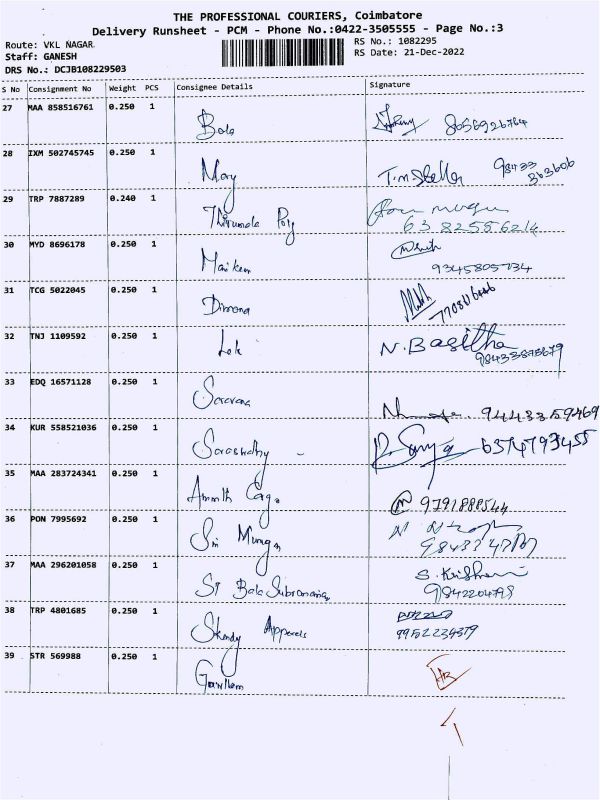 THE PROFESSIONAL COURIERS, Coimbatore
Delivery Runsheet - PCM - Phone No.:0422-3505555 - Page No.:3
Route: VKL NAGAR
RS No.: 1082295
Staff: GANESH
RS Date: 21-Dec-2022
DRS No.: DCJB108229503
S No Consignment No Weight PCS Consignee Details Signature
27 MAA 858516761 0.250 1
Bala 8056926764
28 IXM 502745745 0.250 1
Mary T.M. 98433
363606
29 TRP 7887289 0.240 1
Thirumala Poly
6382556214
30 MYD 8696178 0.250 1
Manikam
9345805734
31 TCG 5022045 0.250 1
Dimona
32 TNJ 1109592 0.250 1
N. Basitha
33 EDQ 16571128 0.250 1
Saravana
9443359469
34 KUR 558521036 0.250 1
6374793455
35 MAA 283724341 0.250 1
9791888544
36 PON 7995692 0.250 1
Sri Murugan
37 MAA 296201058 0.250 1
S. Krishnan
Bala Subramanian
38 TRP 4801685 0.250 1
Apparels
9952234379
39 STR 569988 0.250 1
Gowtham